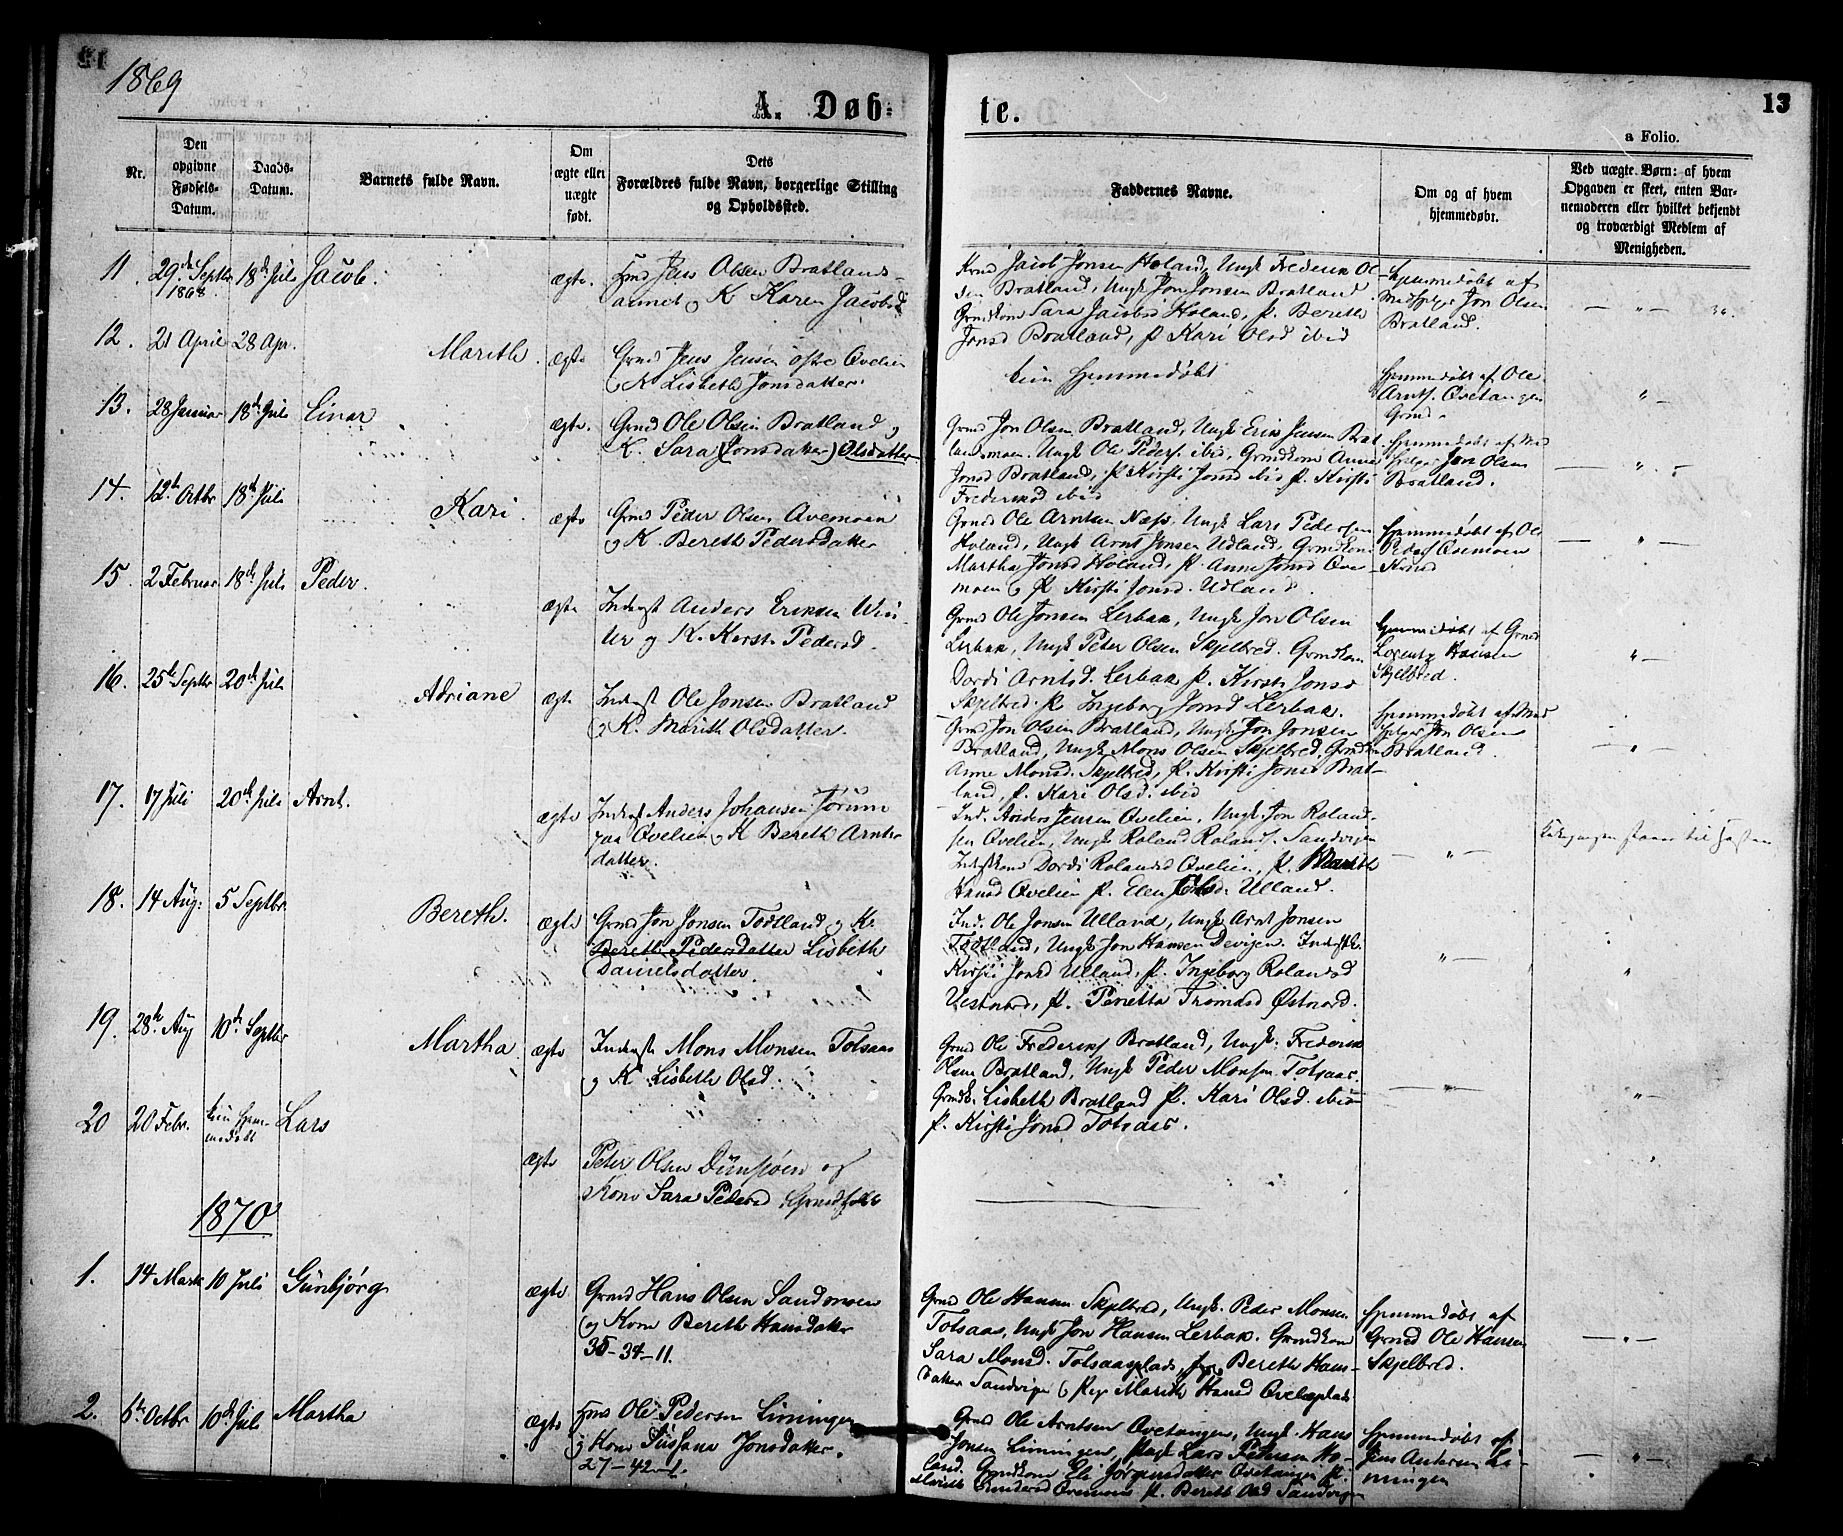 1869
A. Døb-
te.
13
a Folio.
Nr.
Den opgivne Fødsels-Datum.
Daabs-Datum.
Barnets fulde Navn.
Om ægte eller uægte født.
Dets Forældres fulde Navn, borgerlige Stilling og Opholdssted.
Faddernes Navne.
Om og af hvem hjemmedøbt.
Ved uægte Børn: af hvem Opgaven er skeet, enten Barnemoderen eller hvilket bekjendt og troværdigt Medlem af Menigheden.
11. 29de Septbr 1868. 18de Juli Jacob. ægte.
Jens Olsen Bratlands-
K Karen Jacobsd
Jacob Jonsen Holand, Ungk Frederik Ol-
sen Bratland, Ungk Jon Jonsen Bratland
Grndkone Sara Jacobsd Holand, P. Bereth
Jonsd Bratland, P Kari Olsd ibid
Hjemmedøbt af
Medhjelper Jon Olsen
Bratland.
12. 21 April 28 Apr. Marith. ægte
Grmd Jens Jensen østre Qvelien
K Lisbeth Jonsdatter.
kun hjemmedøbt
Hjemmedøbt af Ole
Arnts. Qvetangen
Grmd.
13. 28 Januar 18de Juli Einar ægte.
Grmd Ole Olsen Bratland og
K. Sara (Jonsdatter) Olsdatter
Grmd Jon Olsen Bratland, Ungk Erik Jensen Brat-
landsmoen. Ungk Ole Peders. ibid, Grmdkone Anne
Jonsd Bratland, P. Kirsti Jonsd ibid P. Kirsti
Frederiksd ibid
Hjemmedøbt af Med
hjelper Jon Olsen
Bratland.
14. 12te Octbr 18de Juli Kari. ægte
Grmd Peder Olsen Qvemoen
og K. Bereth Pedersdatter
Grmd Ole Arntsen Næss. Ungk Lars Pedersen
Holand, Ungk Arnt Jonsen Udland, Grmdkone
Martha Jonsd Holand, P. Anne Jonsd Qve-
moen og P Kirsti Jonsd. Udland.
Hjemmedøbt af Ole
Peders Qvemoen
15. 2 Februar 18de Juli Peder. ægte
Inderst Anders Eriksen Win-
ter og K. Kirsti Pedersd.
Grmd Ole Jonsen Lerbak, Ungk Jon Olsen
Lerbak, Ungk Peter Olsen Skjelbred. Grmdkone
Dordi Arntsd. Lerbak P. Kirsti Jonsd
Skjelbred. P Ingeborg Jonsd Lerbak.
Hjemmedøbt af Grmd
Lorents Hansen
Skjelbred.
16. 25te Septbr 20de Juli Adriane ægte
Inderst Ole Jonsen Bratland
og K. Marith Olsdatter.
Grmd Jon Olsen Bratland, Ungk Jon Jonsen
Bratland, Ungk Mons Olsen Skjelbred, Grmdkone
Anne Monsd. Skjelbred, P. Kirsti Jonsd Brat-
land, P. Kari Olsd. ibid
Hjemmedøbt af Med
hjelper Jon Olsen
Bratland.
17. 17 Juli 20de Juli Arnt. ægte
Inderst Anders Johansen Jørum
paa Qvelien og K Bereth Arnts-
datter.
Ind. Anders Jensen Qvelien, Ungk Jon Roland-
sen Qvelien, Ungk Roland Rolands. Sandvigen
Inderstkone Dordi Rolandsd Qvelien, P. Marith
Hansd Qvelien P. Elen Ulland.
til Høsten
18. 14 Aug. 5 Septbr. Bereth. ægte
Grmd Jon Jonsen Tødtland og K.
Bereth Pedersdatter Lisbeth
Danielsdatter.
Ind. Ole Jonsen Ulland, Ungk Arnt Jonsen
Tødtland, Ungk Jon Hansen Devigen. Inderstk.
Kirsti Jonsd Ulland, P. Ingeborg Rolandsd
Vestnord, P. Penetta Tromdsd Østnord.
19. 28de Aug 10de Septbr Martha. ægte
Inderst Mons Monsen Totsaas
og K Lisbeth Olsd.
Grmd Ole Frederiks Bratland, Ungk: Frederik
Olsen Bratland, Ungk Peder Monsen Totsaas.
Grmdk. Lisbeth Bratland P. Kari Olsd. ibid
P. Kirsti Jonsd Totsaas.
20 20 Febr. kun hjem-
medøbt Lars ægte
Peter Olsen og
Kone Sara Pedersd Grmdfolk
1870
1. 14 Marts 10 Juli Gunbjørg ægte
Grmd Hans Olsen Sandmoen
og Kone Bereth Hansdatter
35-34-11.
Grmd Ole Hansen Skjelbred, Ungk. Peder Monsen
Totsaas, Ungk Jon Hansen Lerbak. Grmdkone
Sara Monsd. Totsaasplads, Bereth Hans-
datter Sandvigen og Marith Hansd
Hjemmedøbt af
Grmd Ole Hansen
Skjelbred.
2. 5te Octbr 10de Juli Martha ægte
Ole Pedersen Limingen
og Kone Susana Jonsdatter.
27-42-1.
Grmd Ole Arntsen Qvetangen, Ungk Hans
Jonsen Limingen, Ungk Lars Pedersen Ho-
land. Grmdkone Eli Jørgensdatter Qvetangen P.
Marith Qvemoen P. Bereth Olsd Sandvigen
Hjemmedøbt af
Jens Andersen Li-
mingen